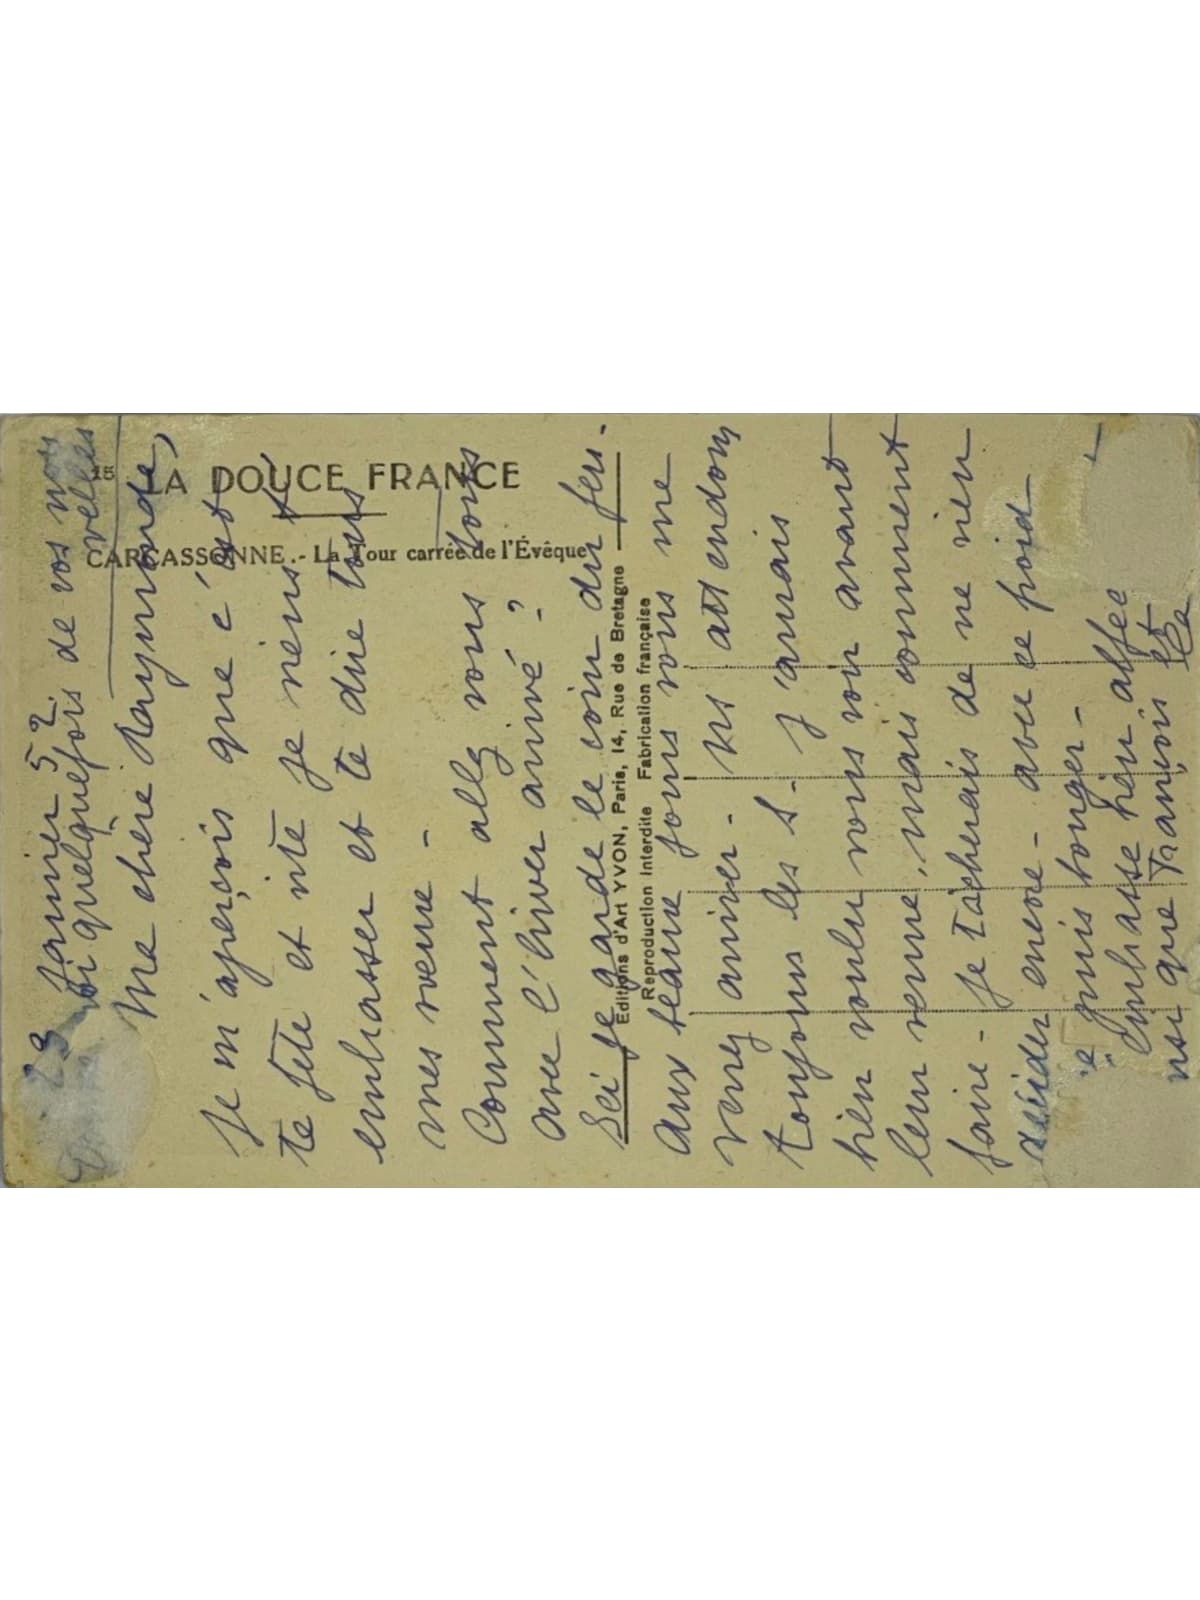 15 LA DOUCE FRANCE
CARCASSONNE. - La Tour carrée de l'Évêque
Editions d'Art YVON, Paris, 14, Rue de Bretagne
Reproduction Interdite Fabrication française
23 Janvier 52
quelquefois de vos nou
velles
Ma chère Raymonde,
Je m'aperçois que c'est
ta fête et vite je viens t'
embrasser et te dire tous
mes vœux -
Comment allez vous tous
avec l'hiver arrivé ?
Ici je garde le coin du feu.
Aux beaux jours vous me
verrez arriver - Ns attendons
toujours les S - j'aurais
bien voulu vous voir avant
leur venue, mais comment
faire - Je tâcherais de ne rien
décider encore - avec ce froid
je puis bouger -
embrasse bien
nsi que François et